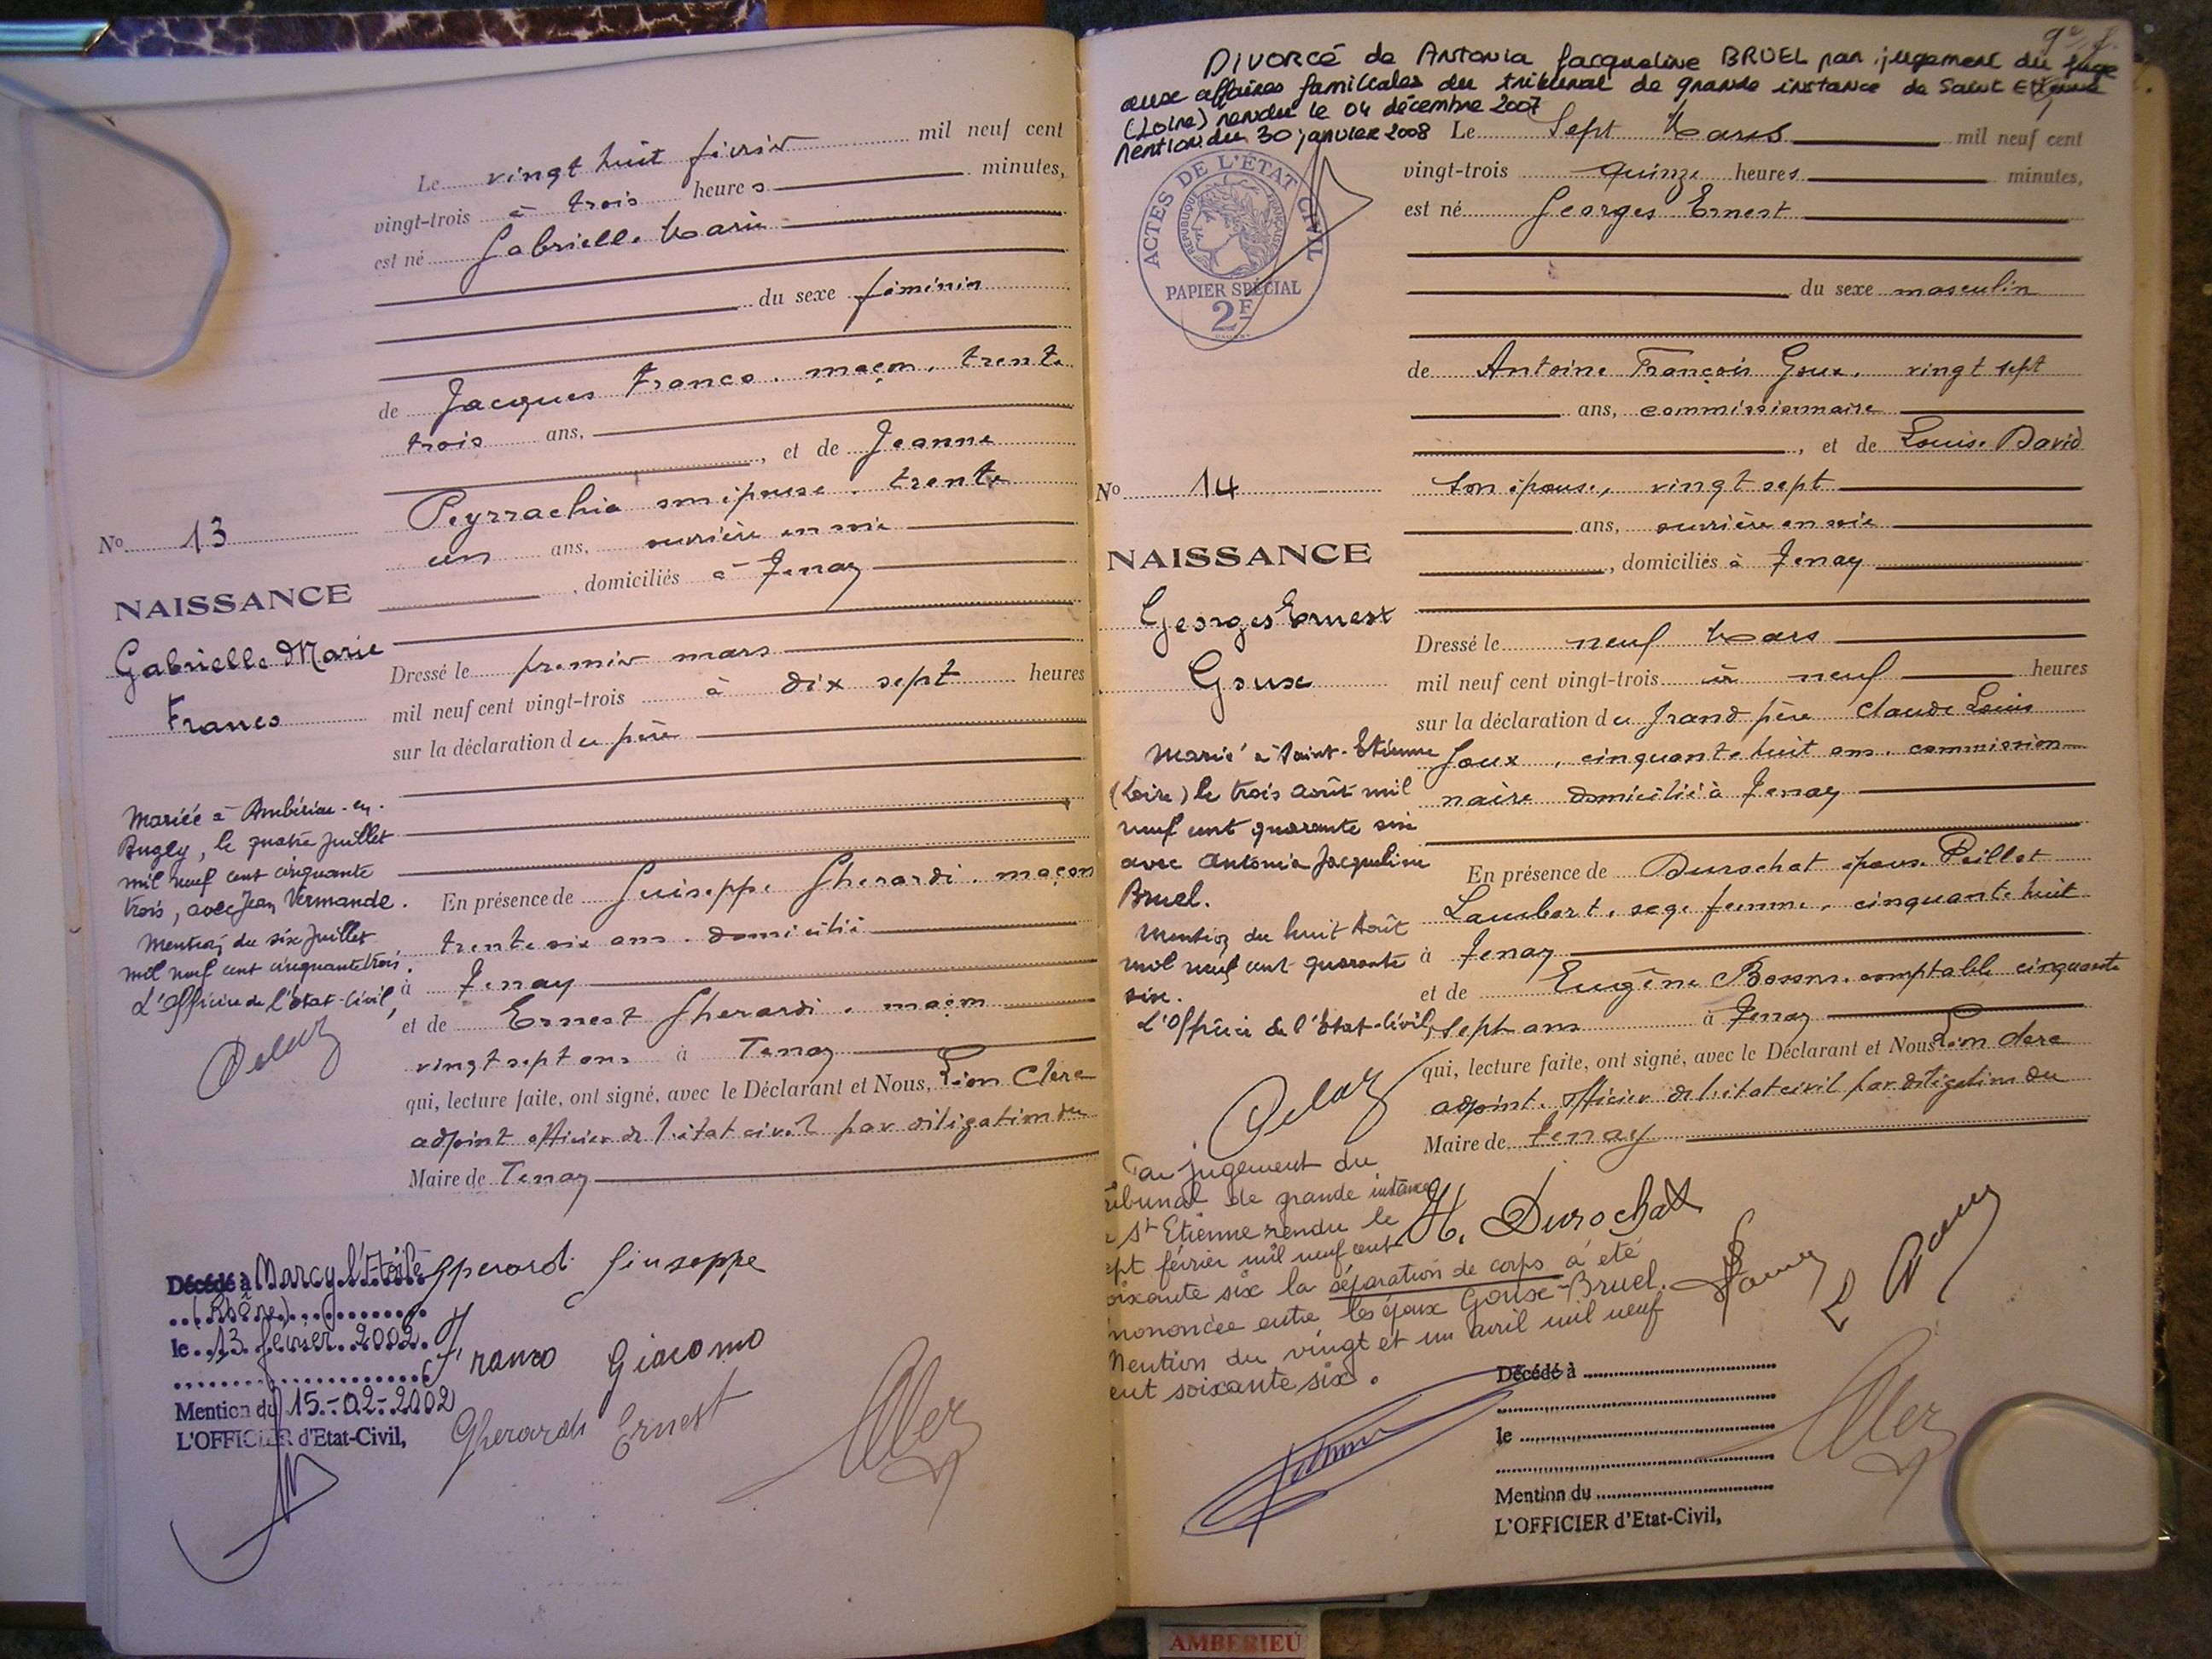 Le vingt huit février mil neuf cent
vingt-trois à trois heures minutes,
est né Gabrielle Marie
du sexe féminin
de Jacques Franco, maçon, trente
trois ans,
, et de Jeanne
Peyrrachia son épouse, trente
un ans, ouvrière en soie
, domiciliés à Tenay
No 13
NAISSANCE
Gabrielle Marie
Franco
Dressé le premier mars
mil neuf cent vingt-trois à dix sept heures
sur la déclaration du père
Mariée à Ambérieu-en-
Bugey, le quatre juillet
mil neuf cent cinquante
trois, avec Jean Vermande.
Mention du six juillet
mil neuf cent cinquante trois.
L'Officier de l'état-Civil,
En présence de Guiseppe Gherardi, maçon
trente six ans, domicilié
à Tenay
et de Ernest Gherardi, maçon
vingt sept ans à Tenay
qui, lecture faite, ont signé, avec le Déclarant et Nous, Léon Clerc
adjoint officier de l'état civil par délégation du
Maire de Tenay
Décédé à Marcy l'Etoile
(Rhône)
le 13 février 2002
Mention du 15-02-2002
L'OFFICIER d'Etat-Civil,
Gherardi Giuseppe
Franco Giacomo
Gherardi Ernest
DIVORCÉ de Antonia Jacqueline BRUEL par jugement du juge
aux affaires familiales du tribunal de grande instance de Saint Etienne
(Loire) rendu le 04 décembre 2007
Mention du 30 janvier 2008
ACTES DE L'ÉTAT CIVIL
RÉPUBLIQUE FRANÇAISE
PAPIER SPÉCIAL
2F
Le Sept Mars mil neuf cent
vingt-trois quinze heures minutes,
est né Georges Ernest
du sexe masculin
de Antoine François Goux, vingt sept
ans, commissionnaire
, et de Louise David
son épouse, vingt sept
ans, ouvrière en soie
, domiciliés à Tenay
No 14
NAISSANCE
Georges Ernest
Goux
Dressé le neuf Mars
mil neuf cent vingt-trois à neuf heures
sur la déclaration du grand père Claude Louis
Goux, cinquante huit ans, commission-
naire domicilié à Tenay
Marié à Saint-Etienne
(Loire) le trois août mil
neuf cent quarante six
avec Antonia Jacqueline
Bruel.
Mention du huit Août
mil neuf cent quarante
six.
L'Officier de l'état-Civil,
En présence de Durochat épouse Peillot
Lambert, sage femme, cinquante huit
à Tenay
et de Eugène comptable cinquante
sept ans à Tenay
qui, lecture faite, ont signé, avec le Déclarant et Nous Léon Clerc
adjoint, officier de l'état civil par délégation du
Maire de Tenay
Par jugement du
tribunal de grande instance
St Etienne rendu le
sept février mil neuf cent
soixante six la séparation de corps a été
prononcée entre les époux Goux-Bruel.
Mention du vingt et un avril mil neuf
cent soixante six.
H. Durochat
Décédé à
le
Mention du
L'OFFICIER d'Etat-Civil,
AMBERIEU